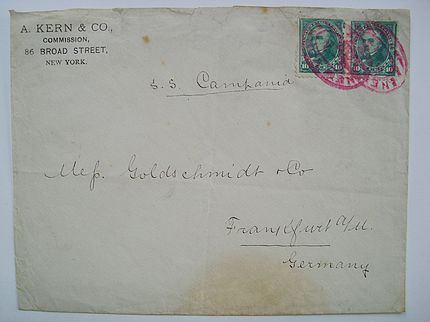 A. KERN & CO.,
COMMISSION,
86 BROAD STREET,
NEW YORK.
10 10
10 10
S. S. Campania
Mess. Goldschmidt & Co
Frankfurt a/M.
Germany